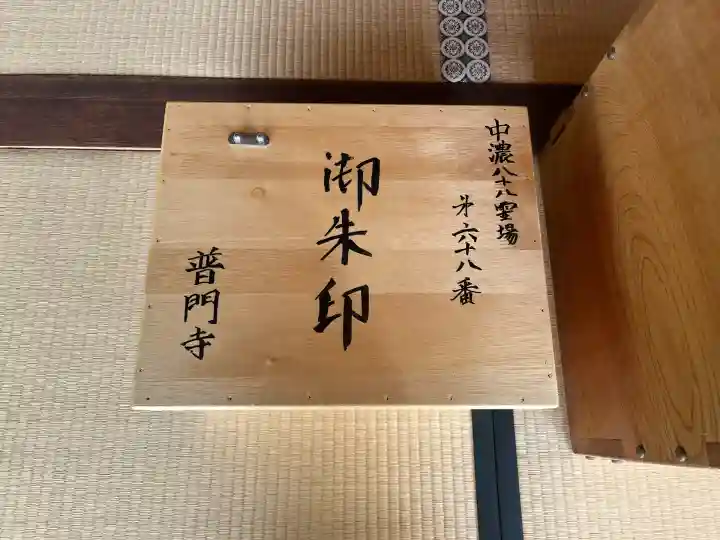 中濃八十八霊場
㐧六十八番
御朱印
普門寺